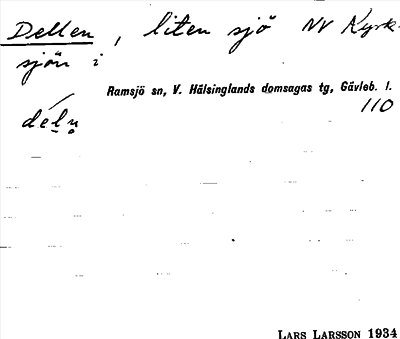 Dellen, liten sjö NV Kyrk-
sjön i
Ramsjö sn, V. Hälsinglands domsagas tg, Gävleb. l.
110
déln
LARS LARSSON 1934